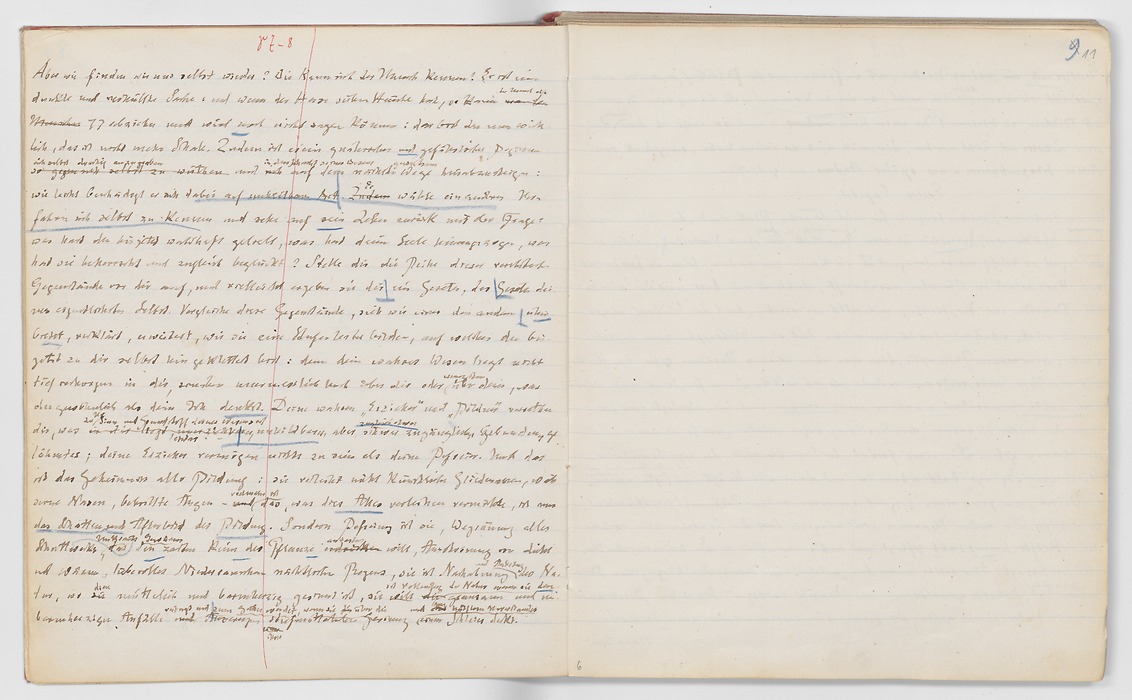 87-8
9 11
Aber wie finden wir uns selbst wieder? Wie kann sich der Mensch kennen? Er ist eine
dunkle und verhüllte Sache: und wenn der Hase sieben Häute hat, so kann
der Mensch sich
77 abziehen und wird noch nicht sagen können: das bist du nun wirk-
lich, das ist nicht mehr Schale. Zudem ist es ein quälerisches und gefährliches Beginnen
sich selbst derartig anzugraben in den Schacht seines Wesens gewaltsam
und auf dem nächsten Wege hinabzusteigen:
wie leicht beschädigt er sich dabei auf wähle ein anderes Ver-
fahren sich selbst zu kennen und sehe auf sein Leben zurück mit der Frage:
was hast du bis jetzt wahrhaft geliebt, was hat deine Seele hinangezogen, was
hat sie beherrscht und zugleich beglückt? Stelle dir die Reihe dieser verehrten
Gegenstände vor dir auf, und vielleicht ergeben sie dir ein Gesetz, das Gesetz dei-
nes eigentlichsten Selbst. Vergleiche diese Gegenstände, sieh wie einer den andern über-
bietet, verklärt, erweitert, wie sie eine Stufenleiter bilden, auf welcher du bis
jetzt zu dir selbst hingeklettert bist: denn dein wahres Wesen liegt nicht
tief verborgen in dir, sondern unermesslich hoch über dir oder wenigstens über dem, was
du gewöhnlich als dein Ich denkst. Deine wahren „Erzieher" und „Bildner" verrathen
dir, was der Sinn und Grundstoff deines Wesens ist
unbildbares, aber schwer zugängliches, gebundenes, ge-
lähmtes; deine Erzieher vermögen nichts zu sein als deine Befreier. Und das
ist das Geheimniss aller Bildung: sie verleiht nicht künstliche Gliedmaassen, wäch-
serne Nasen, bebrillte Augen – vielmehr ist das, was dies Alles verleihen vermöchte, ist nur
das Schatten und Afterbild der Bildung. Sondern Befreiung ist sie, Wegräumung alles
Unkrauts Gewürms
Schuttwerks, das den zarten Keim der Pflanze antasten will, Ausströmung von Licht
und Wärme, liebevolles Niederrauschen nächtlichen Regens, sie ist Nachahmung und Anbetung der Na-
tur, wo diese mütterlich und barmherzig gesinnt ist, sie ist Vollendung der Natur wenn sie den grausamen und un-
barmherzigen Anfälle vorbeugt und zum Guten wendet, wenn sie über die
Gesinnung einen Schleier deckt.
6